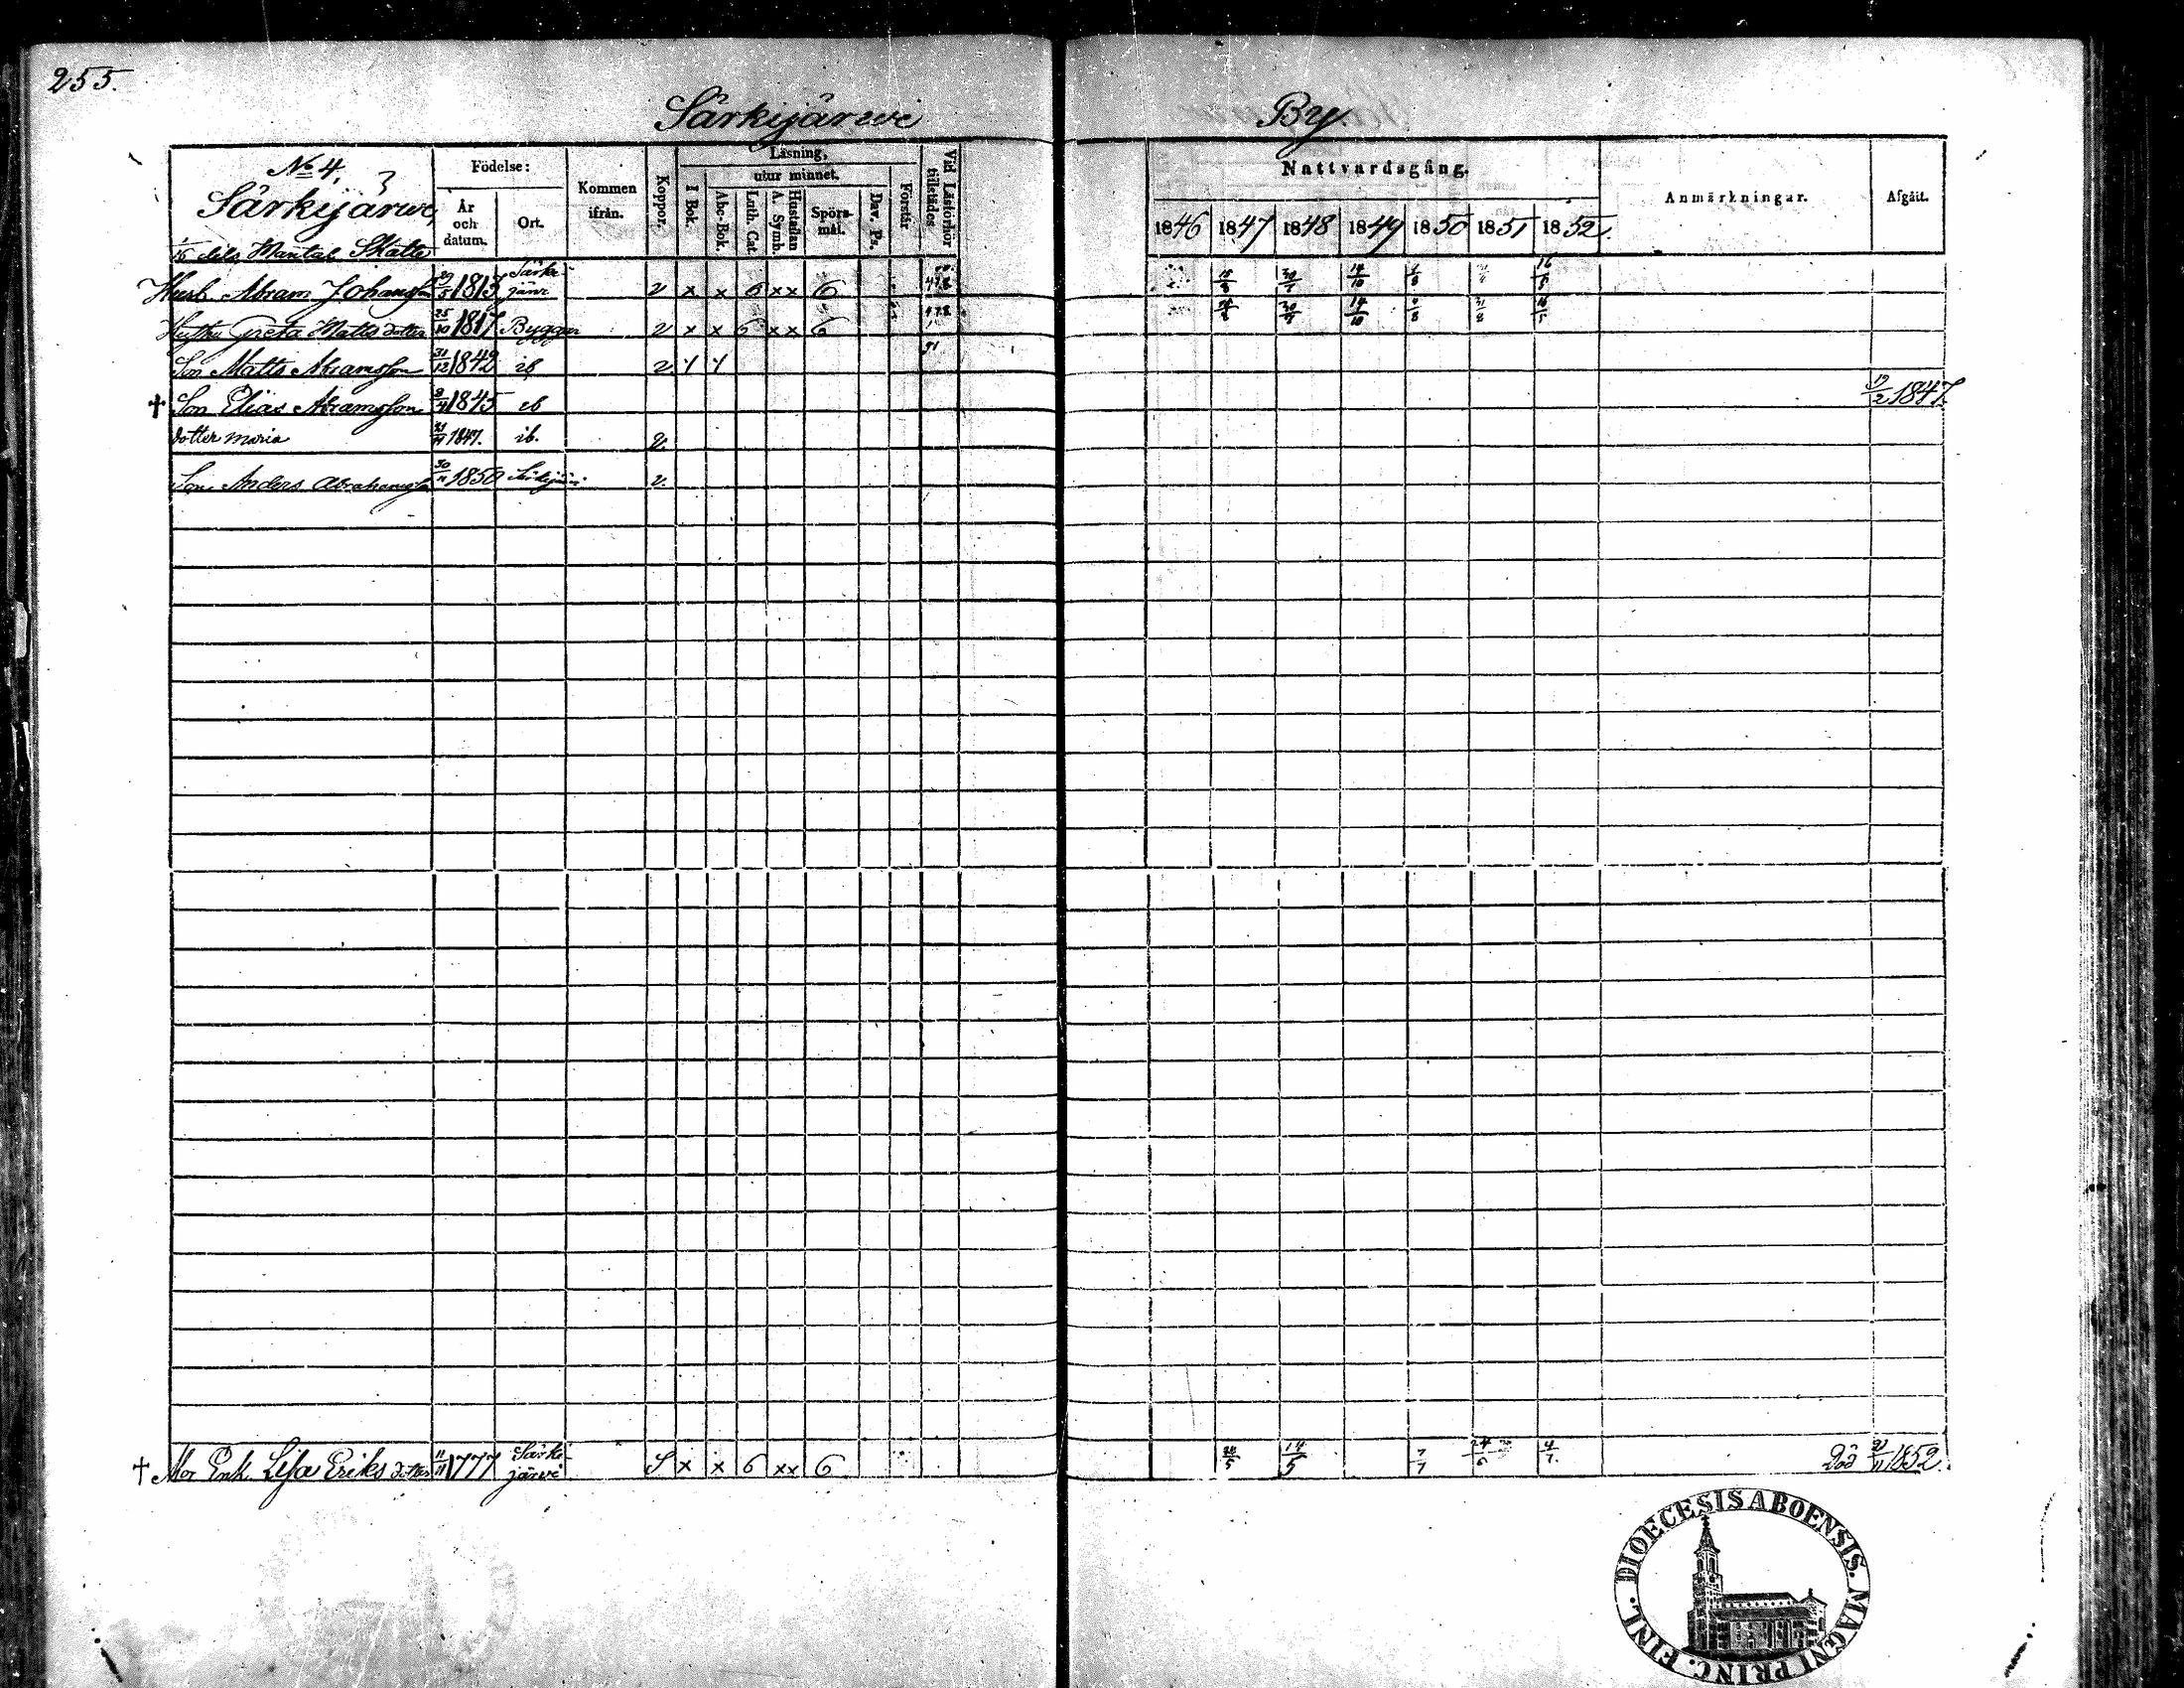 255.
Särkijärwi By.
No 4,
Särkijärwi,
dels Mantal Skatte
Födelse:
År och datum.
Ort.
Kommen ifrån.
Koppor.
Läsning,
utur minnet.
I Bok.
Abc-Bok.
Luth. Cat.
Hustaflan A. Symb.
Spörsmål.
Dav. Ps.
Förstår
Vid Läsförhör tillstädes
Nattvardsgång.
1846 1847 1848 1849 1850 1851 1852.
Anmärkningar.
Afgått.
Husb. Abram Johansson 29/5 1813 Särkijärwi v x x 6 x x 6
Hustru Greta Mattsdotter 25/10 1817 v x x 6 x x 6 14/10
Son Matts Abramsson 31/12 1842 ib v
† Son Elias Abramsson 1845 ib 19/2 1847.
dotter Maria 1847. ib. v.
Son Anders Abrahamsson 30/11 1850 Särkijärvi v.
† Mor Enk. Lisa Eriksdotter 11/11 1777 Särkijärwi S x x 6 x x 6 14/5 7/7 24/6 4/7. Död 1852.
DIOECESIS ABOENSIS. MAGNI PRINC. FINL.